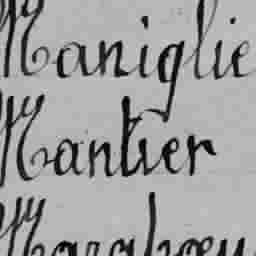 Maniglie
Mantier